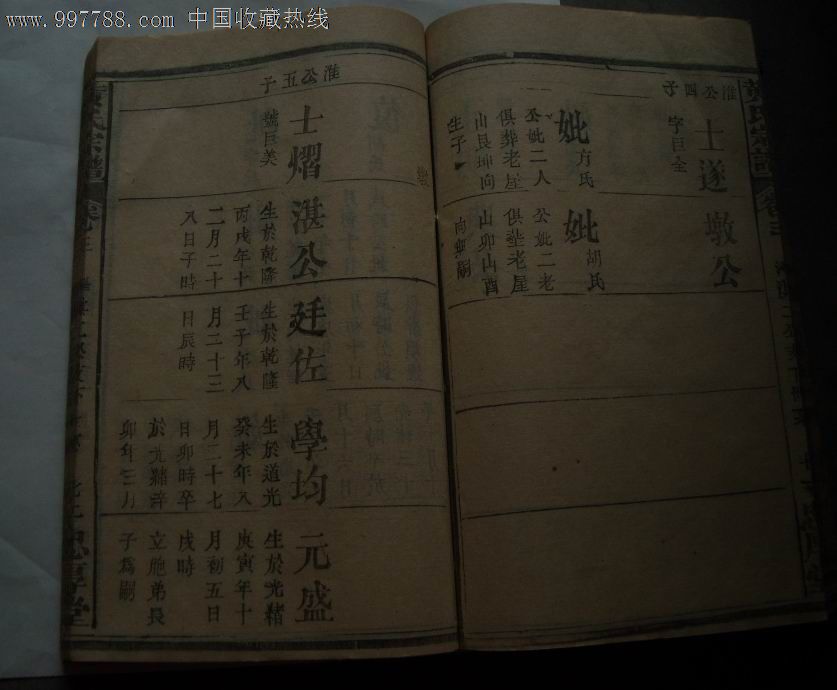 www.997788.com 中国收藏热线
黄氏宗譜
淮公四子
士遂墩公
字巨全
妣方氏
公妣二人
俱葬老屋
山艮坤向
生子
妣胡氏
公妣二老
俱塋老屋
山卯山酉
向無嗣
淮公五子
士熠
號巨美
湛公
生於乾隆
丙戌年十
二月二十
八日子時
廷佐
生於乾隆
壬子年八
月二十三
日辰時
學均
生於道光
癸未年八
月二十七
日卯時卒
於光緒辛
卯年三月
元盛
生於光緒
庚寅年十
月初五日
戌時
立胞弟長
子爲嗣
黄氏宗譜
忠厚堂